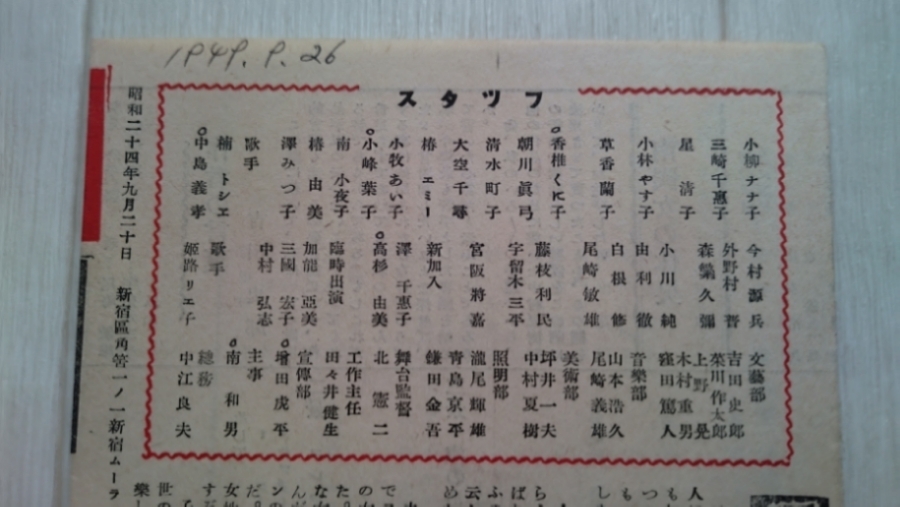 1949.9.26
スタッフ
小柳ナナ子
三崎千惠子
星清子
小林やす子
草香蘭子
香椎くに子
朝川眞弓
清水町子
大空千尋
椿エミー
小牧あい子
小峰葉子
南小夜子
椿由美
澤みつ子
歌手
楠トシエ
中島義孝
今村源兵
外野村晋
森繁久彌
小川純
由利徹
白根修
尾崎敏雄
藤枝利民
宇留木三平
宮阪將嘉
新加入
澤千惠子
高杉由美
臨時出演
加龍亞美
三國宏子
中村弘志
歌手
姫路リエ子
文藝部
吉田史郎
菜川作太郎
上野晃
木村重男
窪田篤人
音樂部
山本浩久
尾崎義雄
美術部
坪井一夫
中村夏樹
照明部
瀧尾輝雄
青島京平
鎌田金吾
舞台監督
北憲二
工作主任
田々井健生
宣傳部
增田虎平
主事
南和男
總務
中江良夫
昭和二十四年九月二十日 新宿區角筈一ノ一新宿ムーラ